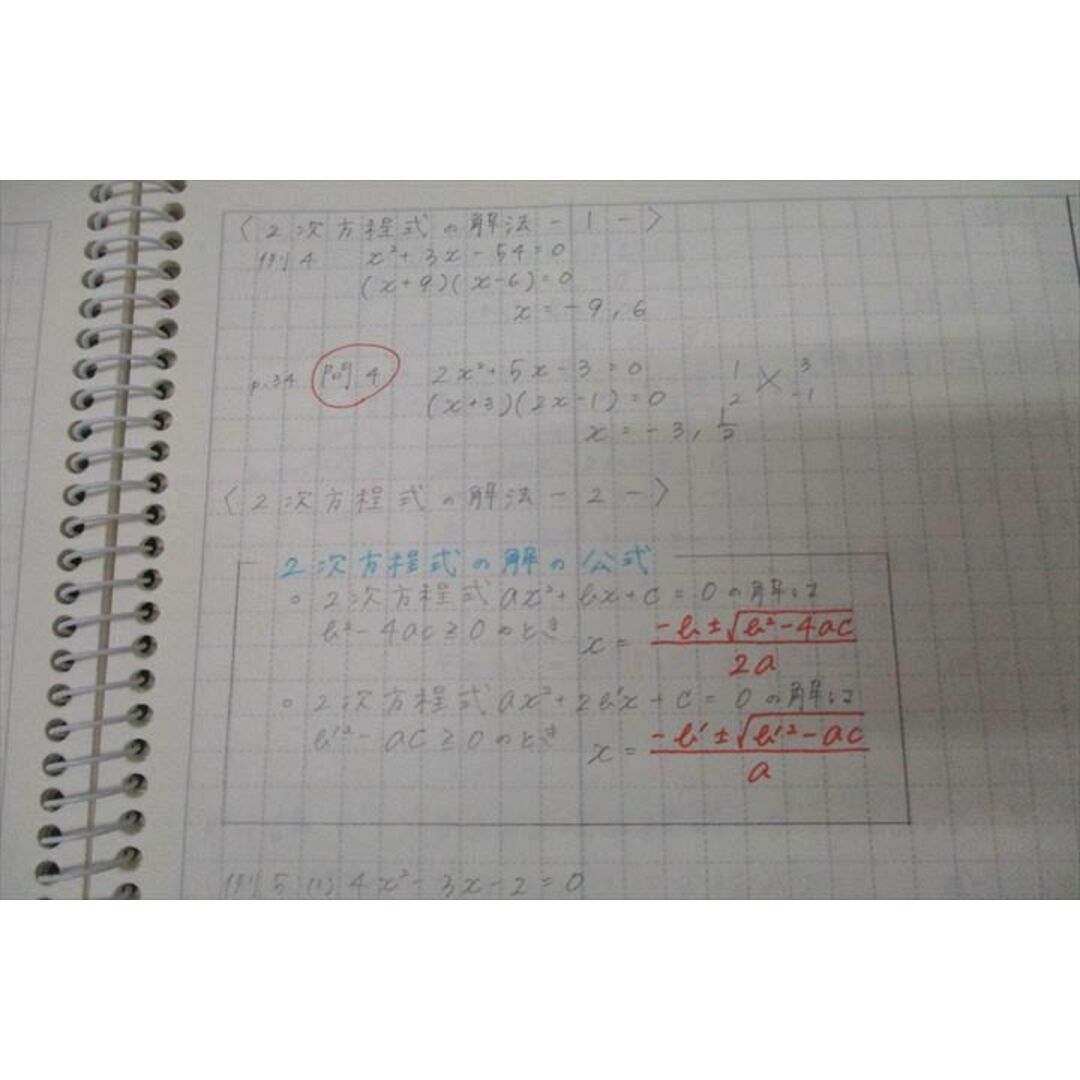 〈2次方程式の解法-1-〉
例4 x²+3x-54=0
(x+9)(x-6)=0
x=-9,6
p.34 問4 2x²+5x-3=0 1 3
(x+3)(2x-1)=0 2 -1
x=-3,1/2
〈2次方程式の解法-2-〉
2次方程式の解の公式
○2次方程式ax²+bx+c=0の解は
b²-4ac≧0のとき x=(-b±√(b²-4ac))/2a
○2次方程式ax²+2b'x+c=0の解は
b'²-ac≧0のとき x=(-b'±√(b'²-ac))/a
例5 (1) 4x²-3x-2=0